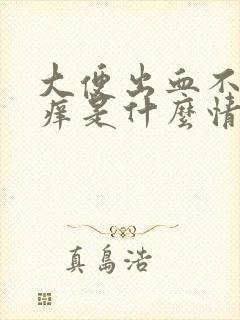 大便出血不
痒是什麼情
真島浩